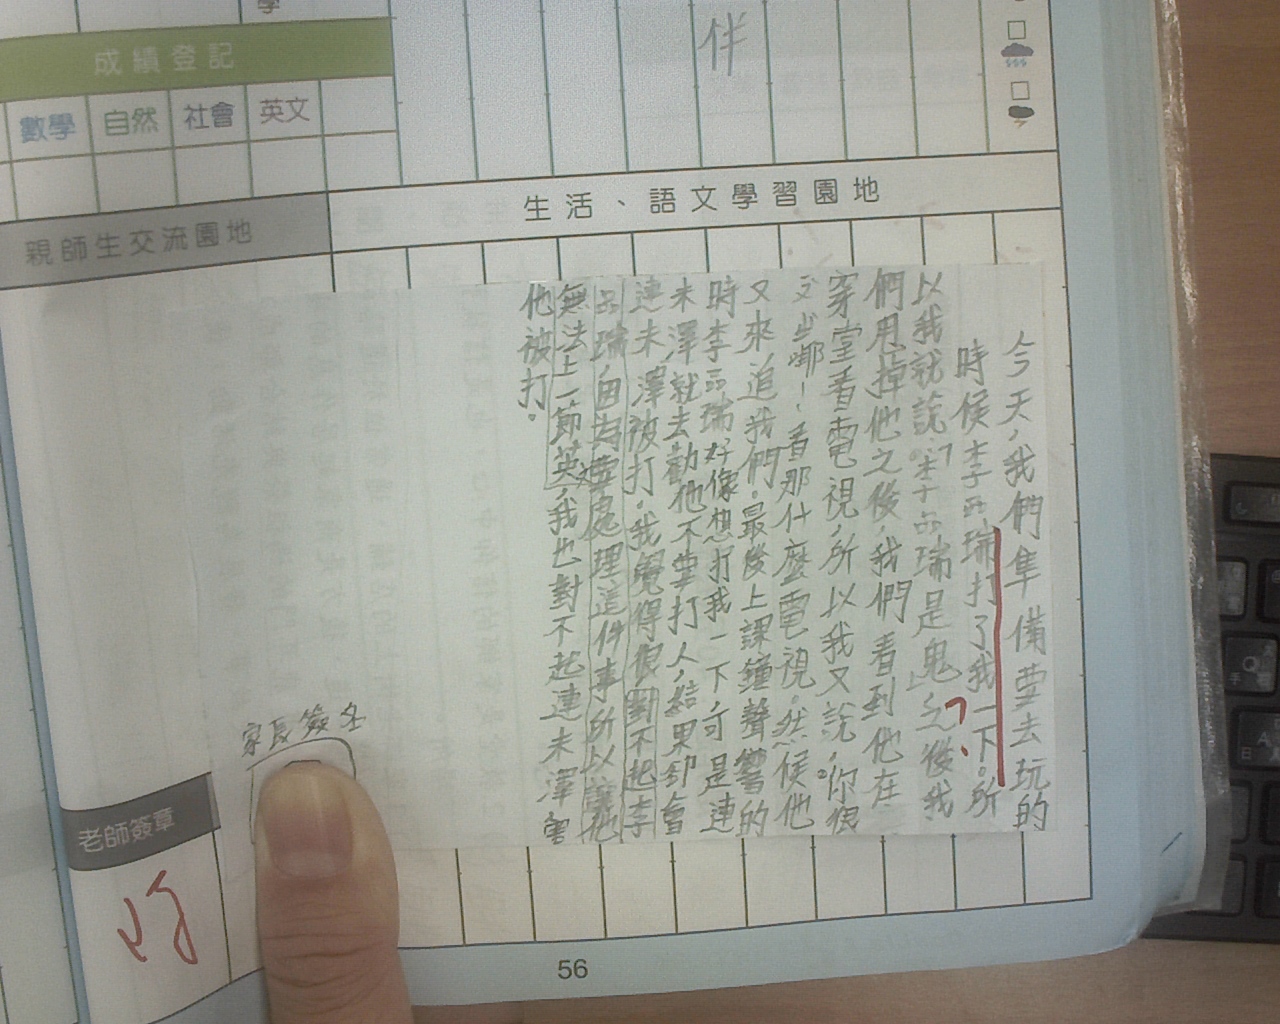 學
伴
成績登記
數學 自然 社會 英文
生活、語文學習園地
親師生交流園地
今天,我們準備要去玩的
時候李品瑞打了我一下。所
以我就說:「李品瑞是鬼」之後我
們甩掉他之後,我們看到他在
穿堂看電視,所以我又說:你很
看那什麼電視。然候他
又來追我們。最後上課鐘聲響的
時李品瑞好像想打我一下,可是連
未澤就去勸他不要打人,結果卻會
連未澤被打。我覺得很對不起李
品瑞,由去要處理這件事所以讓他
無法上一節英,我也對不起連未澤害
他被打。
家長簽名
老師簽章
56